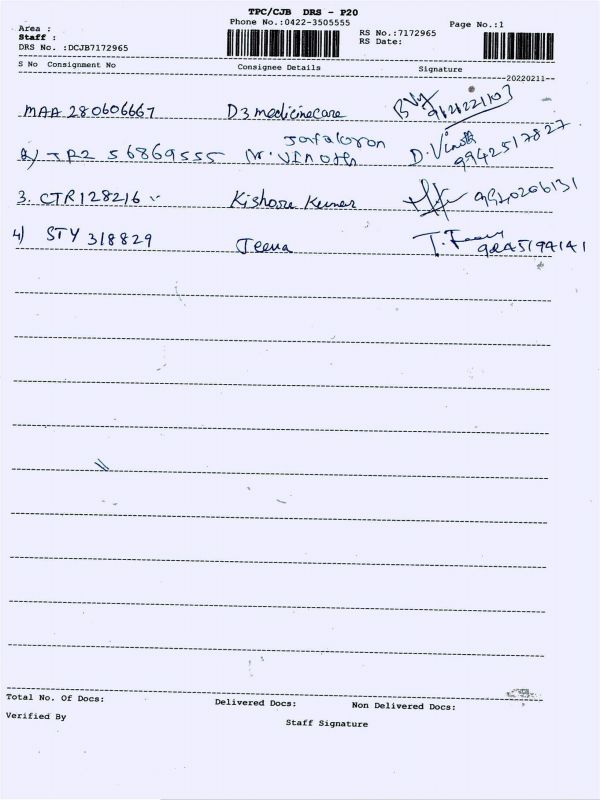 TPC/CJB DRS - P20
Area : Phone No.:0422-3505555 Page No.:1
Staff : RS No.:7172965
DRS No. :DCJB7172965 RS Date:
S No Consignment No Consignee Details Signature
20220211
MAA 280606667 D3 medicinecare
2) TRZ 56869555 Mr. Vinoth D. Vinoth 9942517827
3. CTR128216 Kishore Kumar
4) STY 318829 Jeena T. Jeena 9245194141
Total No. Of Docs: Delivered Docs: Non Delivered Docs:
Verified By Staff Signature